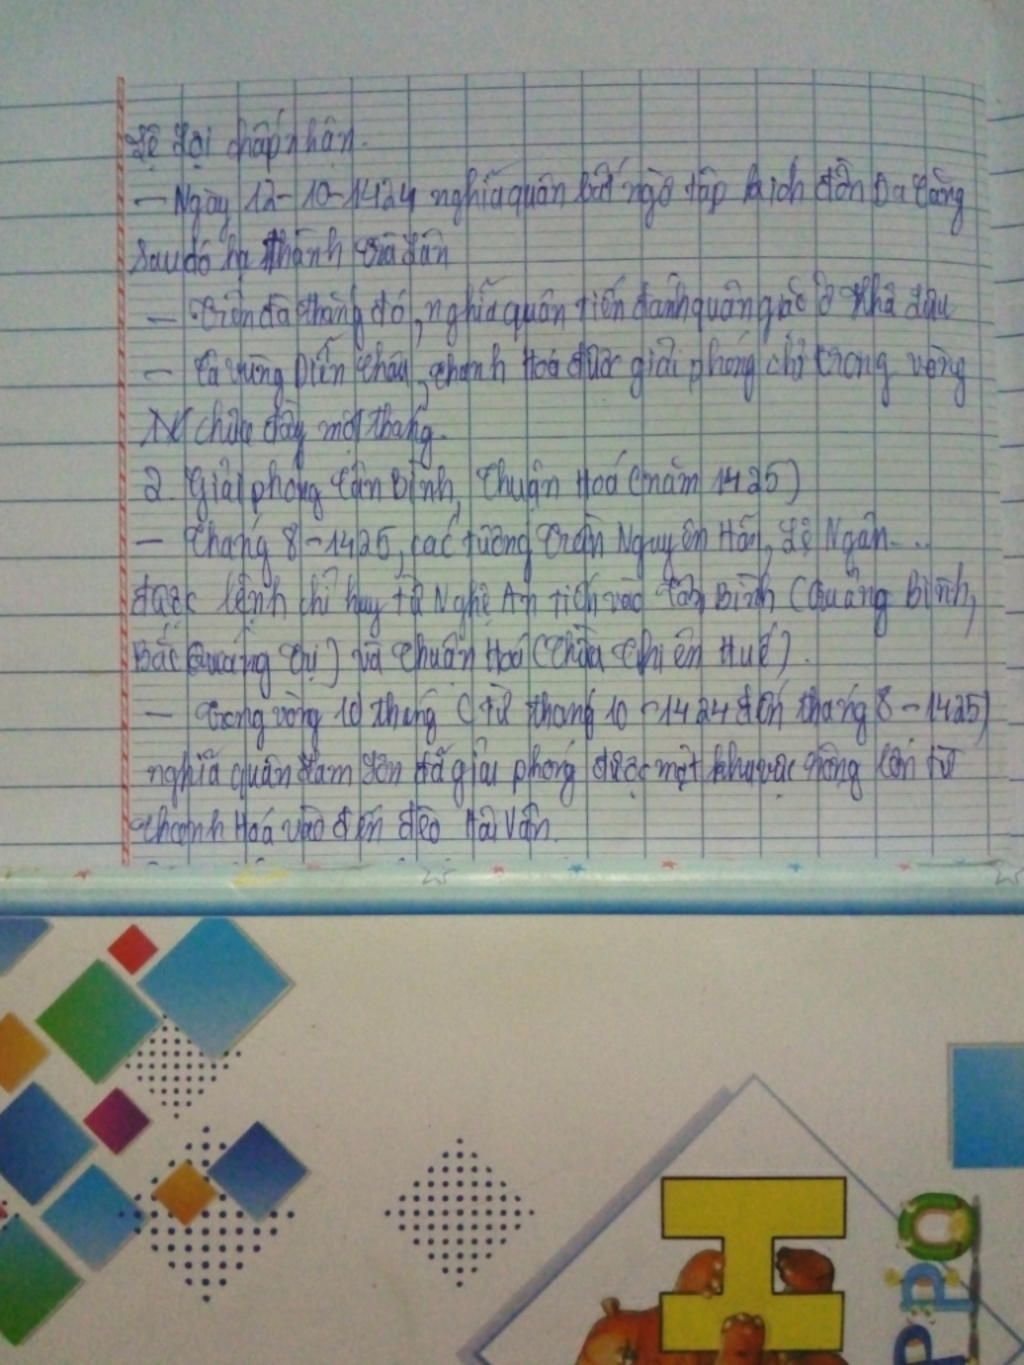 Lê Lợi chấp nhận.
- Ngày 12-10-1424 nghĩa quân bất ngờ tập kích đồn Đa Căng
Sau đó hạ thành Trà Lân
- Trên đà thắng đó, nghĩa quân tiến đánh quân giặc ở Khả Lưu
- Cả vùng Diễn Châu, Thanh Hoá được giải phóng chỉ trong vòng
chưa đầy một tháng.
2. Giải phóng Tân Bình, Thuận Hoá (năm 1425)
- Tháng 8-1425, các tướng Trần Nguyên Hãn, Lê Ngân...
được lệnh chỉ huy từ Nghệ An tiến vào Tân Bình (Quảng Bình,
Bắc Quảng Trị) và Thuận Hoá (Thừa Thiên Huế).
- Trong vòng 10 tháng (từ tháng 10-1424 đến tháng 8-1425)
nghĩa quân Lam Sơn đã giải phóng được một khu vực rộng lớn từ
Thanh Hoá vào đến đèo Hải Vân.
H
PPO